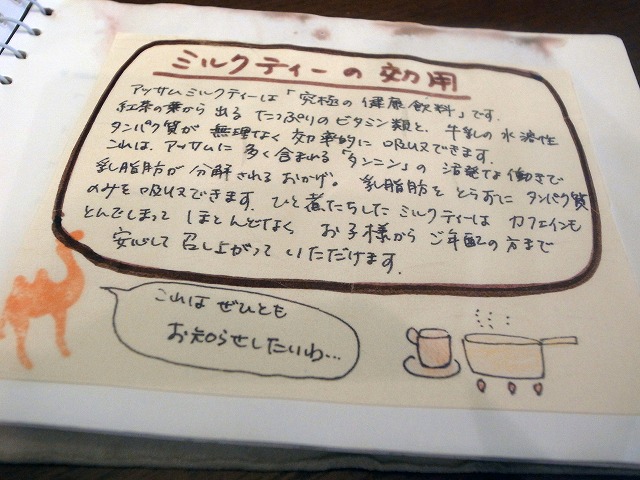 ミルクティーの効用
アッサムミルクティーは「究極の健康飲料」です.
紅茶の葉から出る たっぷりのビタミン類と、牛乳の水溶性
タンパク質が 無理なく 効率的に 吸収できます.
これは、アッサムに 多く含まれる「タンニン」の 活発な働きで
乳脂肪が 分解される おかげ。 乳脂肪を とらずに タンパク質
のみを 吸収できます. ひと煮たちした ミルクティーは カフェインも
とんでしまって ほとんどなく、 お子様から ご年配の方まで
安心して 召し上がって いただけます.
これは ぜひとも
お知らせしたいわ…